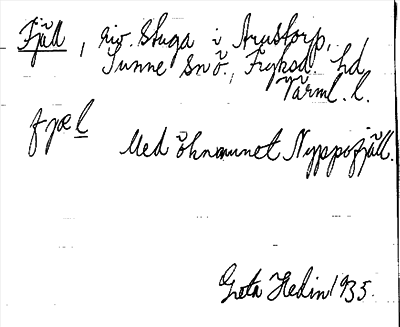 Fjäll, riv. Stuga i Arustorp,
Sunne snö., Fryksd. hd,
Värml. l.
fjæl
Med öknamnet Nyppofjäll.
Greta Hedin 1935.